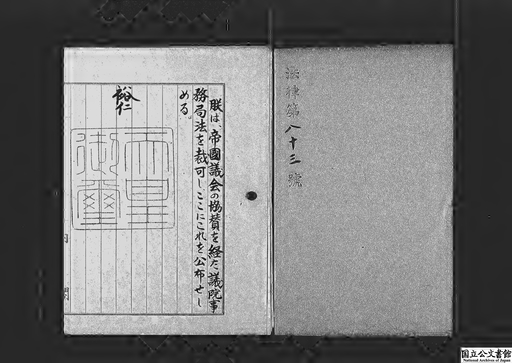 法律第八十三號
朕は、帝國議会の協賛を経た議院事
務局法を裁可し、ここにこれを公布せし
める。
裕仁
天皇
御璽
国立公文書館
National Archives of Japan